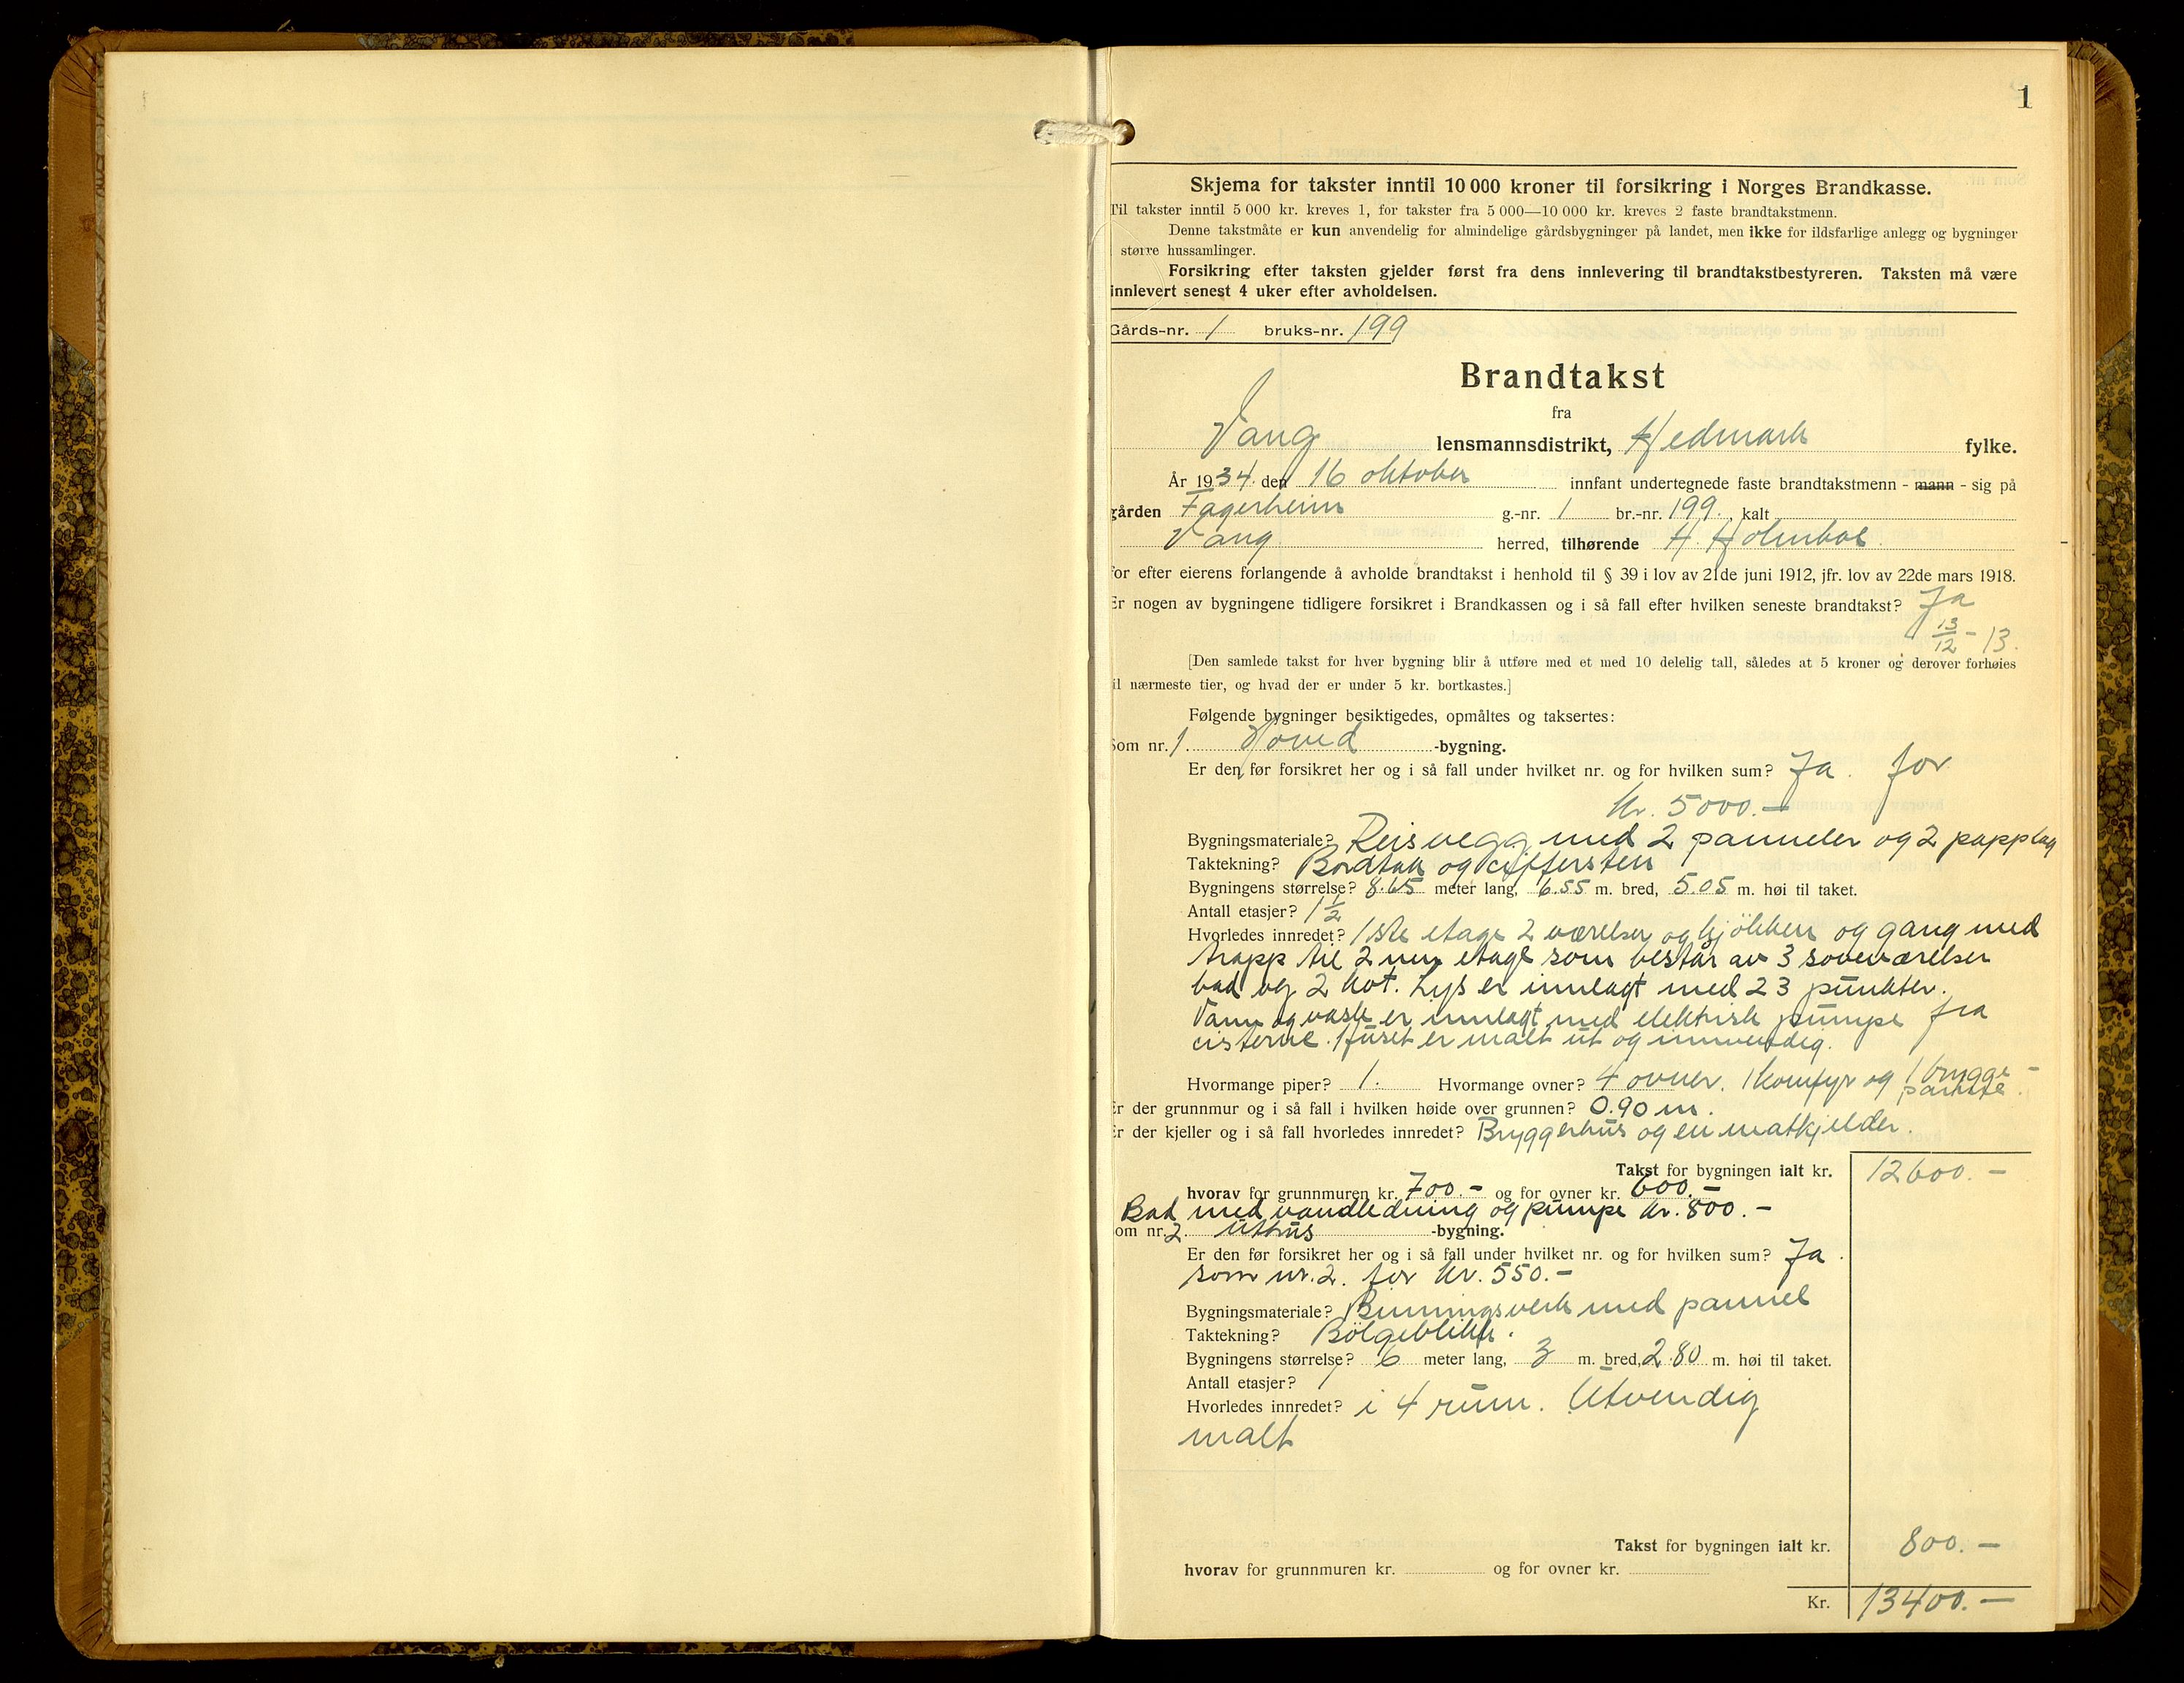 1
Skjema for takster inntil 10 000 kroner til forsikring i Norges Brandkasse.
Til takster inntil 5 000 kr. kreves 1, for takster fra 5 000—10 000 kr. kreves 2 faste brandtakstmenn.
Denne takstmåte er kun anvendelig for almindelige gårdsbygninger på landet, men ikke for ildsfarlige anlegg og bygninger
større hussamlinger.
Forsikring efter taksten gjelder først fra dens innlevering til brandtakstbestyreren. Taksten må være
innlevert senest 4 uker efter avholdelsen.
Gårds-nr. 1 bruks-nr. 199
Brandtakst
fra
Vang lensmannsdistrikt, Hedmark fylke.
År 1934 den 16 oktober innfant undertegnede faste brandtakstmenn - mann - sig på
gården Fagerheim g.-nr. 1 br.-nr. 199. , kalt
Vang herred, tilhørende H. Holmboe.
for efter eierens forlangende å avholde brandtakst i henhold til § 39 i lov av 21de juni 1912, jfr. lov av 22de mars 1918.
Er nogen av bygningene tidligere forsikret i Brandkassen og i så fall efter hvilken seneste brandtakst? Ja
13/12 - 13.
[Den samlede takst for hver bygning blir å utføre med et med 10 delelig tall, således at 5 kroner og derover forhøies
il nærmeste tier, og hvad der er under 5 kr. bortkastes.]
Følgende bygninger besiktigedes, opmåltes og taksertes:
Som nr. 1. Hoved -bygning.
Er den før forsikret her og i så fall under hvilket nr. og for hvilken sum? Ja. for
kr. 5000.—
Bygningsmateriale? Reisvegg med 2 panneler og 2 papplag
Taktekning? Bordtak og skiffersten
Bygningens størrelse? 8.65 meter lang, 6.55 m. bred, 5.05 m. høi til taket.
Antall etasjer? 1 1/2
Hvorledes innredet? 1ste etage 2 værelser og kjökken og gang med
trapp til 2 nen etage som består av 3 soveværelser
bad og 2 kot. Lys er innlagt med 23 punkter.
Vann og vask er innlagt med elektrisk pumpe fra
cisterne. Huset er malt ut og innvendig.
Hvormange piper? 1. Hvormange ovner? 4 ovner. 1 komfyr og 1 brygge-
panne.
Er der grunnmur og i så fall i hvilken høide over grunnen? 0.90 m.
Er der kjeller og i så fall hvorledes innredet? Bryggerhus og en matkjelder.
Takst for bygningen ialt kr. 12600.—
hvorav for grunnmuren kr. 700.- og for ovner kr. 600.—
Bad med vandledning og pumpe kr. 800.—
om nr. 2 uthus -bygning.
Er den før forsikret her og i så fall under hvilket nr. og for hvilken sum? Ja.
som nr. 2. for kr. 550.—
Bygningsmateriale? Binningsverk med pannel
Taktekning? Bölgeblikk.
Bygningens størrelse? 6 meter lang, 3 m. bred, 2.80 m. høi til taket.
Antall etasjer? 1
Hvorledes innredet? i 4 rum. Utvendig
malt
Takst for bygningen ialt kr. 800.—
hvorav for grunnmuren kr. og for ovner kr.
Kr. 13400.—